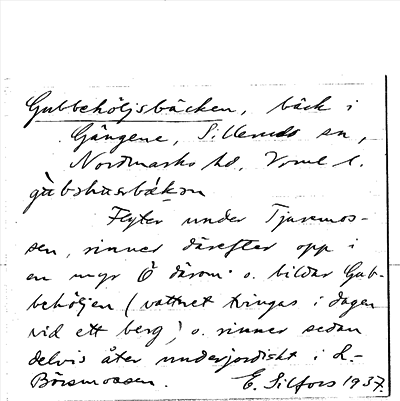 Gubbehöljsbäcken, bäck i
Gängene, Silleruds sn,
Nordmarks hd, Vrml l.
Flyter under Tjuremos-
sen, rinner därefter opp i
en myr Ö därom o. bildar Gub-
behöljen (vattnet tvingas i dagen
vid ett berg) o. rinner sedan
delvis åter underjordiskt i L.-
Börsmossen. E. Silfors 1937.